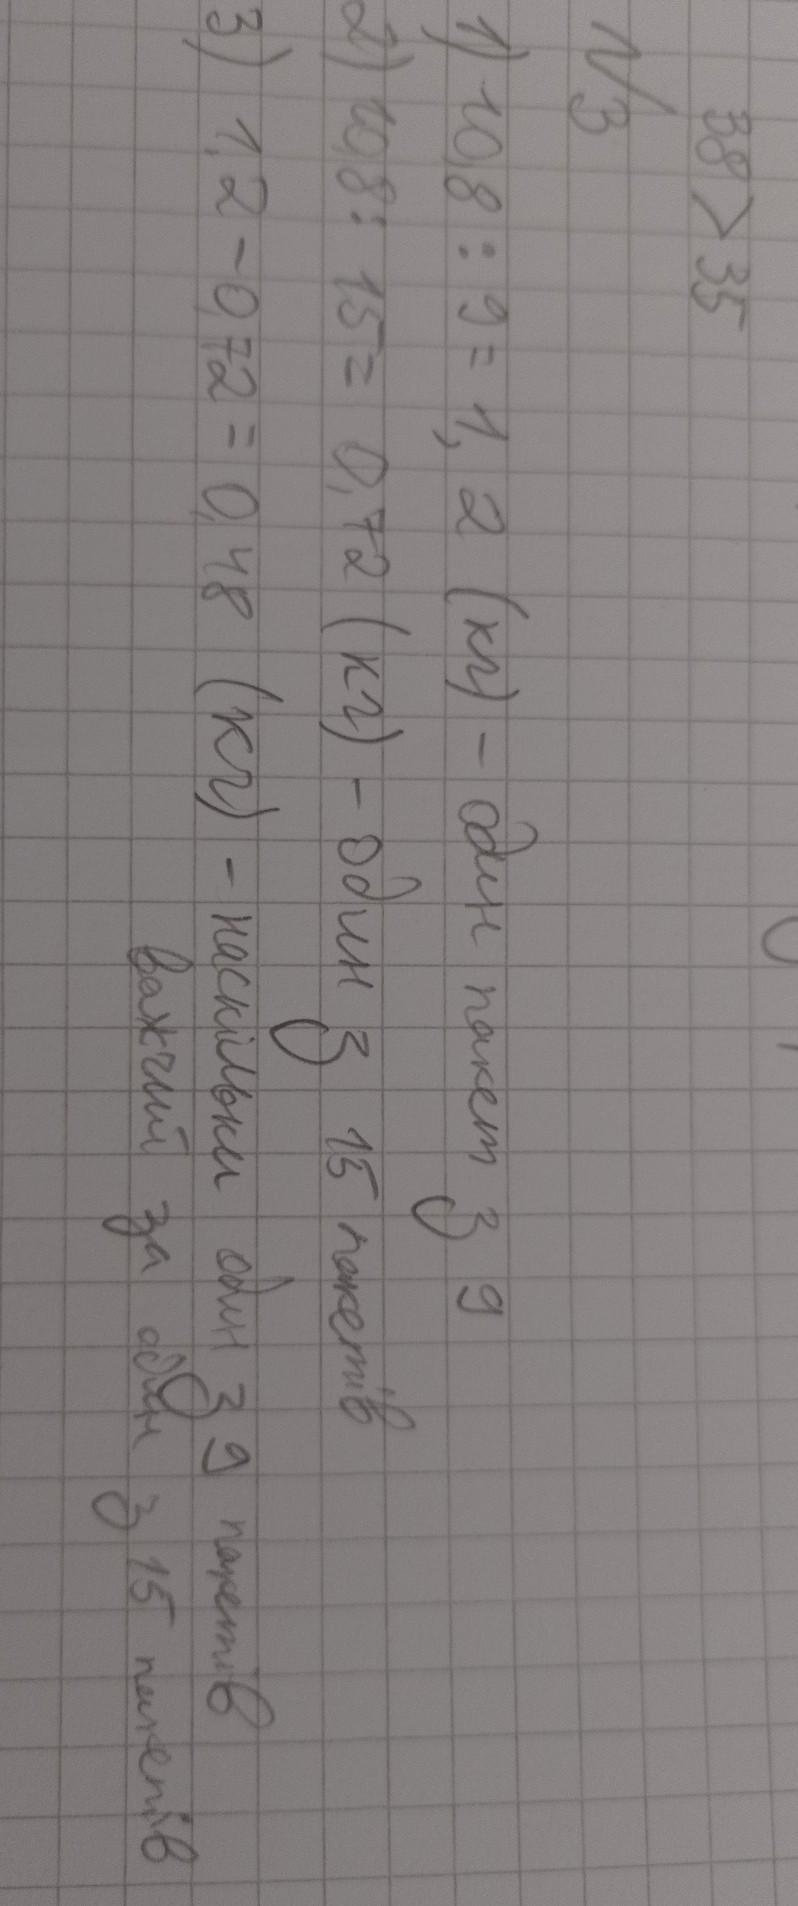 38 > 35
№3
1) 10,8 : 9 = 1,2 (кг) - один пакет з 9
2) 10,8 : 15 = 0,72 (кг) - один з 15 пакетів
3) 1,2 - 0,72 = 0,48 (кг) - наскільки один з 9 пакетів
важчий за один з 15 пакетів